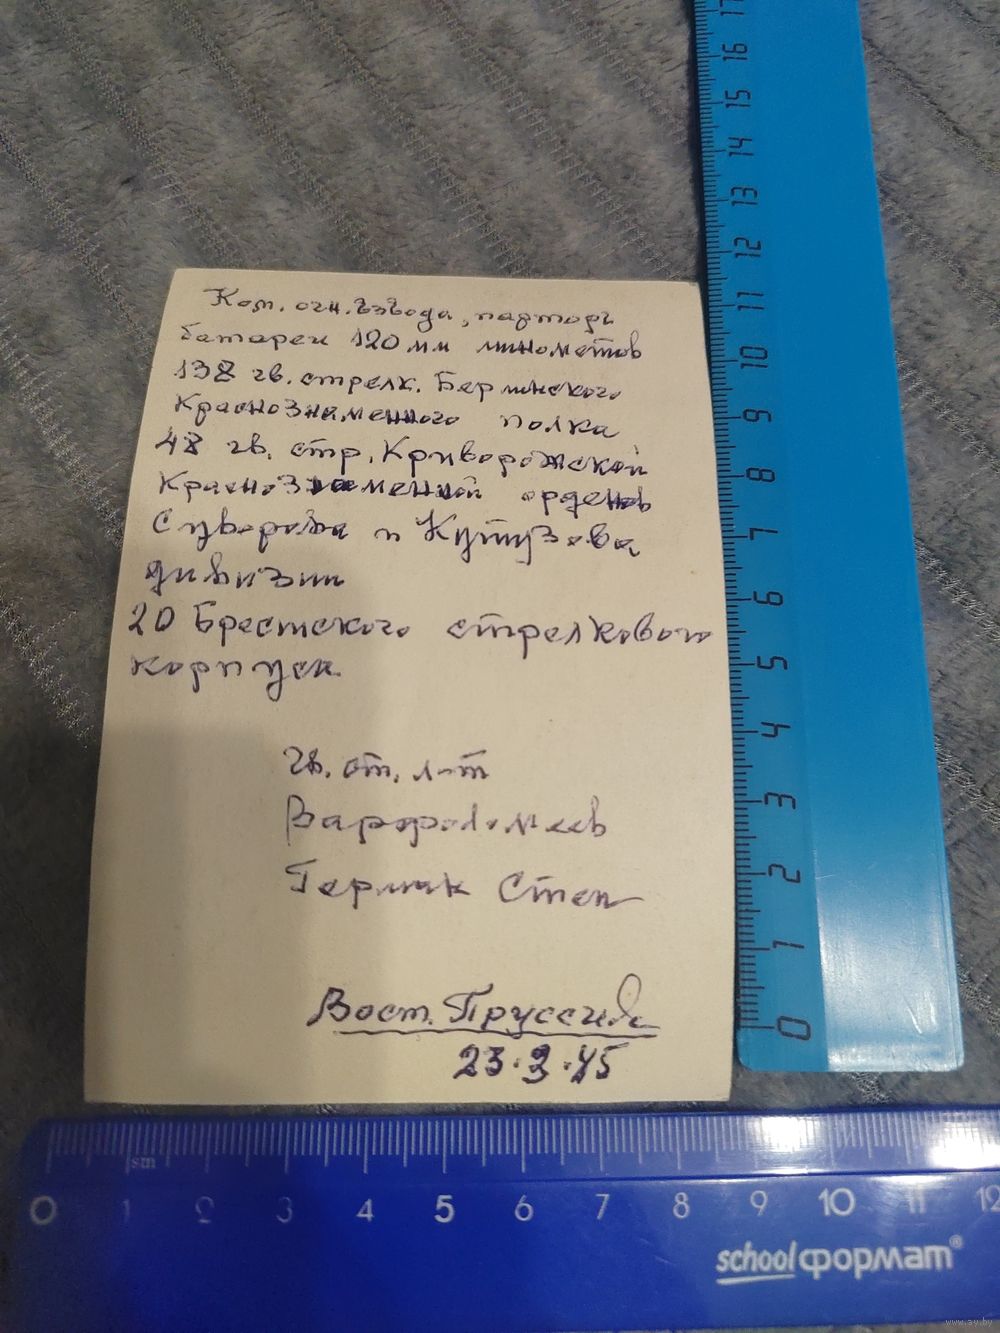 Ком. огн. взвода, парторг
батареи 120 мм минометов
138 гв. стрелк. Берлинского
Краснознаменного полка
48 гв. стр. Криворожской
Краснознаменной орденов
Суворова и Кутузова
дивизии
20 Брестского стрелкового
корпуса
гв. ст. л-т
Варфоломеев
Герман Степ
Вост. Пруссия
23.3.45
17
16
15
14
13
12
11
10
9
8
7
6
5
4
3
2
1
0
sm
0 1 2 3 4 5 6 7 8 9 10 11 12
school формат®
www.ay.by